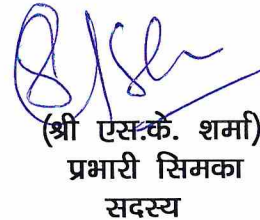 (श्री एस.के. शर्मा)
प्रभारी सिमका
सदस्य